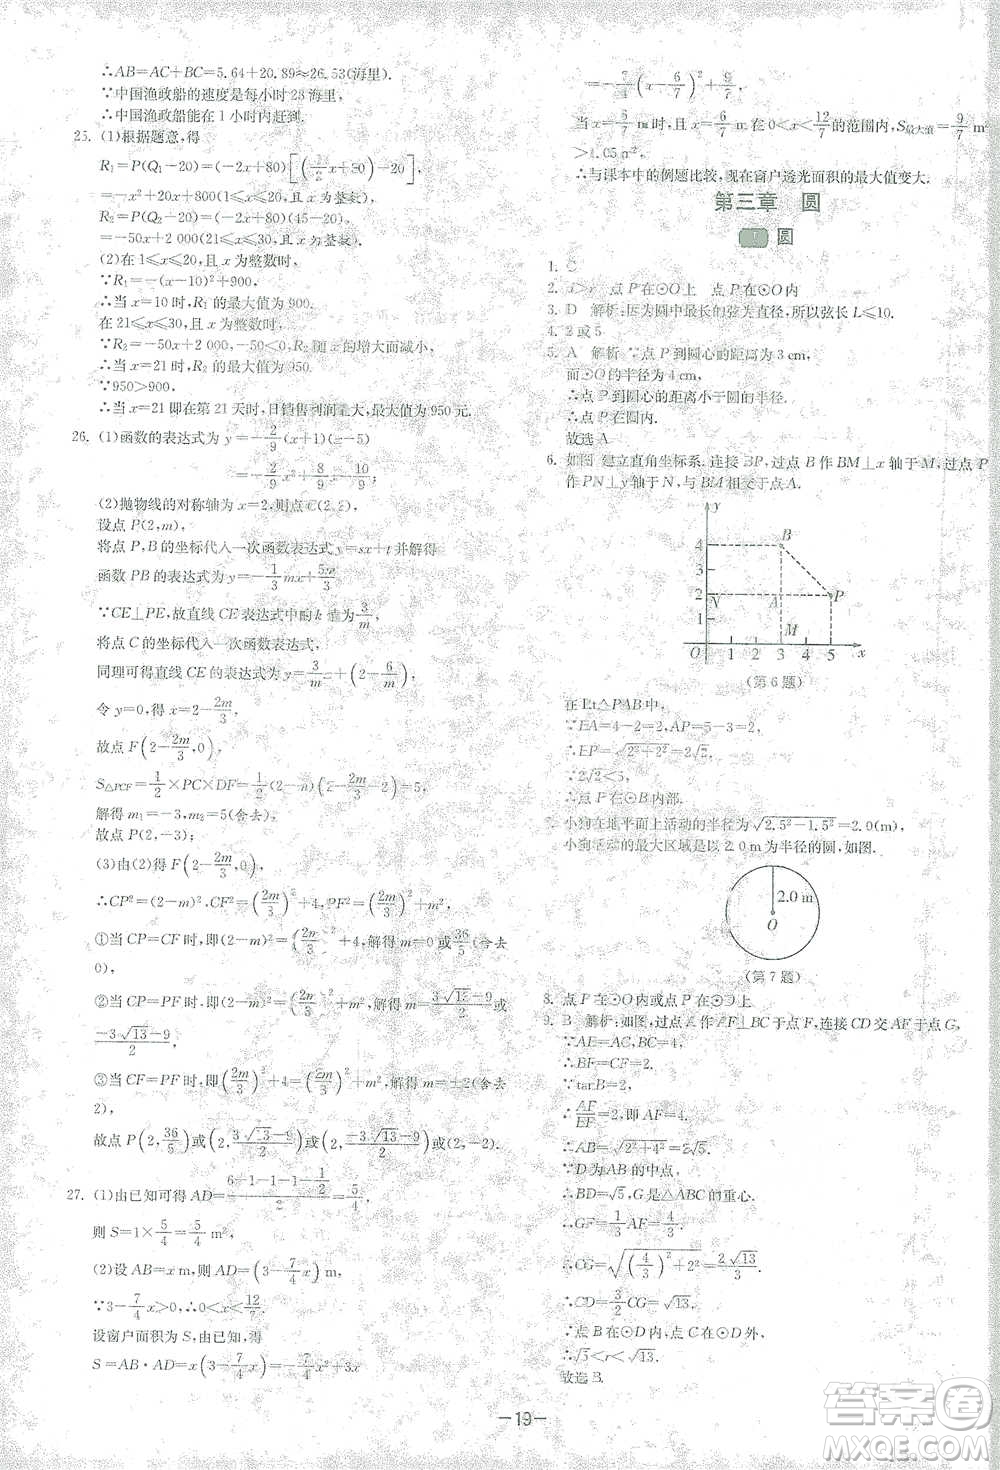 ∴AB=AC+BC=5.64+20.89≈26.53(海里).
∵中国渔政船的速度是每小时28海里,
∴中国渔政船能在1小时内赶到.
25. (1)根据题意,得
R₁=P(Q₁-20)=(-2x+80)[(1/2x+30)-20],
=-x²+20x+800(1≤x≤20,且x为整数),
R₂=P(Q₂-20)=(-2x+80)(45-20),
=-50x+2 000(21≤x≤30,且x为整数);
(2)在1≤x≤20,且x为整数时,
∵R₁=-(x-10)²+900,
∴当x=10时,R₁的最大值为900.
在21≤x≤30,且x为整数时,
∵R₂=-50x+2 000,-50<0,R₂随x的增大而减小,
∴当x=21时,R₂的最大值为950.
∵950>900,
∴当x=21即在第21天时,日销售利润最大,最大值为950元.
26. (1)函数的表达式为y=-2/9(x+1)(x-5)
=-2/9x²+8/9x+10/9;
(2)抛物线的对称轴为x=2,则点C(2,2),
设点P(2,m),
将点P,B的坐标代入一次函数表达式y=sx+t并解得
函数PB的表达式为y=-1/3mx+5m/3,
∵CE⊥PE,故直线CE表达式中的k值为3/m,
将点C的坐标代入一次函数表达式,
同理可得直线CE的表达式为y=3/m x+(2-6/m),
令y=0,则x=2-2m/3,
故点F(2-2m/3,0),
S△PCF=1/2×PC×DF=1/2(2-m)(2m/3-2)=5,
解得m₁=-3,m₂=5(舍去),
故点P(2,-3);
(3)由(2)得F(2-2m/3,0),
∴CP²=(2-m)²,CF²=(2m/3)²+4,PF²=(2m/3)²+m²,
①当CP=CF时,即(2-m)²=(2m/3)²+4,解得m=0或36/5(舍去
0),
②当CP=PF时,即(2-m)²=(2m/3)²+m²,解得m=(3√13-9)/2或
(-3√13-9)/2,
③当CF=PF时,即(2m/3)²+4=(2m/3)²+m²,解得m=±2(舍去
2),
故点P(2,36/5)或(2,(3√13-9)/2)或(2,(-3√13-9)/2)或(2,-2).
27. (1)由已知可得AD=(6-1-1-1-1/2)/2=5/4,
则S=1×5/4=5/4 m²,
(2)设AB=x m,则AD=(3-7/4x)m,
∵3-7/4x>0,∴0<x<12/7.
设窗户面积为S,由已知,得
S=AB·AD=x(3-7/4x)=-7/4x²+3x
=-7/4(x-6/7)²+9/7,
当x=6/7 m时,且x=6/7 m在0<x<12/7的范围内,S最大值=9/7 m²
>1.05 m²,
∴与课本中的例题比较,现在窗户透光面积的最大值变大.
第三章 圆
1 圆
1. C
2. d>r 点P在⊙O上 点P在⊙O内
3. D 解析:因为圆中最长的弦为直径,所以弦长L≤10.
4. 2或5
5. A 解析:∵点P到圆心的距离为3 cm,
而⊙O的半径为4 cm,
∴点P到圆心的距离小于圆的半径.
∴点P在圆内.
故选A.
6. 如图,建立直角坐标系.连接BP,过点B作BM⊥x轴于M,过点P
作PN⊥y轴于N,与BM相交于点A.
y
4 B
3
2 N A P
1 M
O 1 2 3 4 5 x
(第6题)
在Rt△PAB中,
∵BA=4-2=2,AP=5-3=2,
∴BP=√(2²+2²)=2√2,
∵2√2<5,
∴点P在⊙B内部.
7. 小狗在地平面上活动的半径为√(2.5²-1.5²)=2.0(m),
小狗活动的最大区域是以2.0 m为半径的圆,如图.
2.0 m
O
(第7题)
8. 点P在⊙O内或点P在⊙O上
9. B 解析:如图,过点A作AF⊥BC于点F,连接CD交AF于点G,
∵AB=AC,BC=4,
∴BF=CF=2.
∵tanB=2,
∴AF/BF=2,即AF=4,
∴AB=√(2²+4²)=2√5.
∵D为AB的中点,
∴BD=√5,G是△ABC的重心,
∴GF=1/3AF=4/3,
∴CG=√((4/3)²+2²)=2√13/3,
∴CD=3/2CG=√13,
∵点B在⊙D内,点C在⊙D外,
∴√5<r<√13,
故选B.
—19—
答案圈
MXQE.COM